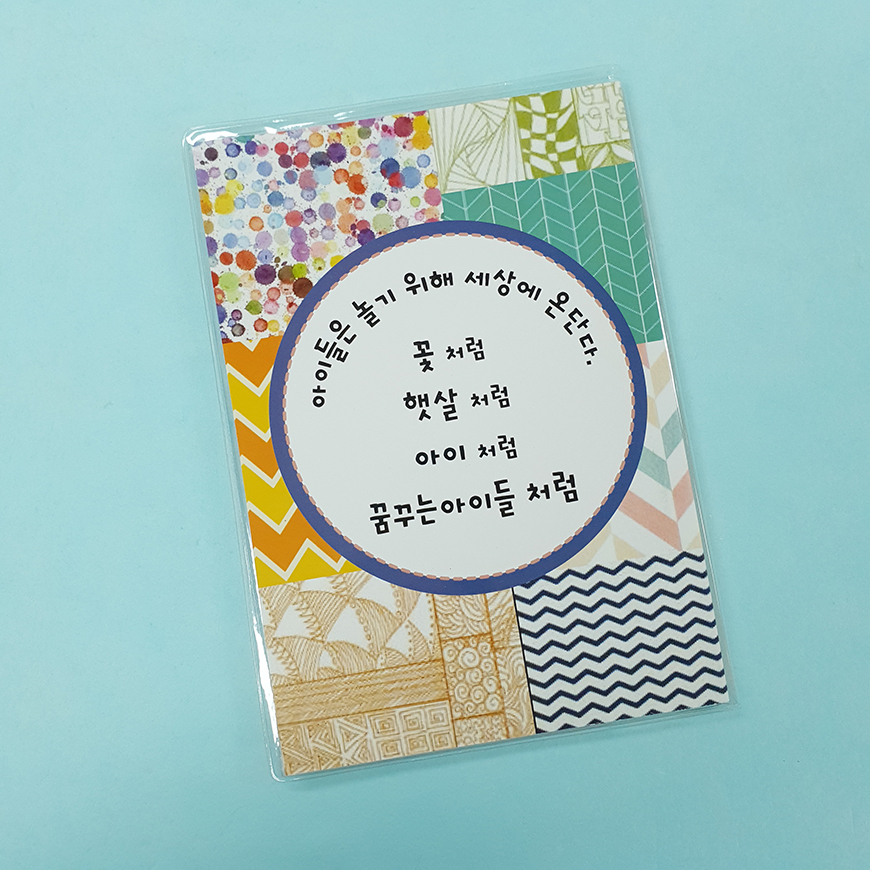 아이들은 놀기 위해 세상에 온단다.
꽃 처럼
햇살 처럼
아이 처럼
꿈꾸는아이들 처럼